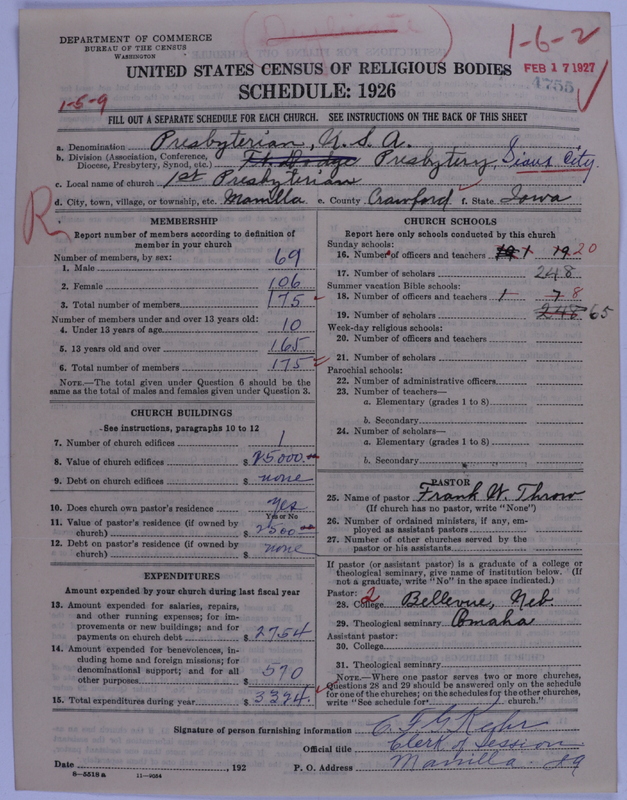 (Duplicate)
DEPARTMENT OF COMMERCE
BUREAU OF THE CENSUS
WASHINGTON
1-6-2
FEB 17 1927
4755
UNITED STATES CENSUS OF RELIGIOUS BODIES
SCHEDULE: 1926
1-5-9
FILL OUT A SEPARATE SCHEDULE FOR EACH CHURCH. SEE INSTRUCTIONS ON THE BACK OF THIS SHEET
a. Denomination Presbyterian, U.S.A.
b. Division (Association, Conference, Diocese, Presbytery, Synod, etc.) Ft. Dodge Presbytery, Sioux City.
c. Local name of church 1st Presbyterian
d. City, town, village, or township, etc. Manilla e. County Crawford f. State Iowa
R
MEMBERSHIP
Report number of members according to definition of
member in your church
Number of members, by sex:
1. Male 69
2. Female 106
3. Total number of members 175
Number of members under and over 13 years old:
4. Under 13 years of age 10
5. 13 years old and over 165
6. Total number of members 175
NOTE.—The total given under Question 6 should be the
same as the total of males and females given under Question 3.
CHURCH BUILDINGS
See instructions, paragraphs 10 to 12
7. Number of church edifices 1
8. Value of church edifices $ 25000
9. Debt on church edifices $ none
10. Does church own pastor's residence yes
Yes or No
11. Value of pastor's residence (if owned by
church) $ 2500
12. Debt on pastor's residence (if owned by
church) $ none
EXPENDITURES
Amount expended by your church during last fiscal year
13. Amount expended for salaries, repairs,
and other running expenses; for im-
provements or new buildings; and for
payments on church debt $ 2754
14. Amount expended for benevolences, in-
cluding home and foreign missions; for
denominational support; and for all
other purposes $ 570
15. Total expenditures during year $ 3324.
CHURCH SCHOOLS
Report here only schools conducted by this church
Sunday schools:
16. Number of officers and teachers 1 19 20
17. Number of scholars 248
Summer vacation Bible schools:
18. Number of officers and teachers 1 7 8
19. Number of scholars 248 65
Week-day religious schools:
20. Number of officers and teachers
21. Number of scholars
Parochial schools:
22. Number of administrative officers
23. Number of teachers—
a. Elementary (grades 1 to 8)
b. Secondary
24. Number of scholars—
a. Elementary (grades 1 to 8)
b. Secondary
PASTOR
25. Name of pastor Frank W. Throw
(If church has no pastor, write "None")
26. Number of ordained ministers, if any, em-
ployed as assistant pastors
27. Number of other churches served by the
pastor or his assistants
If pastor (or assistant pastor) is a graduate of a college or
theological seminary, give name of institution below. (If
not a graduate, write "No" in the space indicated.)
Pastor: 2
28. College Bellevue, Neb.
29. Theological seminary Omaha
Assistant pastor:
30. College
31. Theological seminary
NOTE.—Where one pastor serves two or more churches,
Questions 28 and 29 should be answered only on the schedule
for one of the churches; on the schedules for the other churches,
write "See schedule for church."
Signature of person furnishing information C. F. G. Kehr
Official title Clerk of Session
Date , 192 P. O. Address Manilla Ia
8—5518 a 11—9054